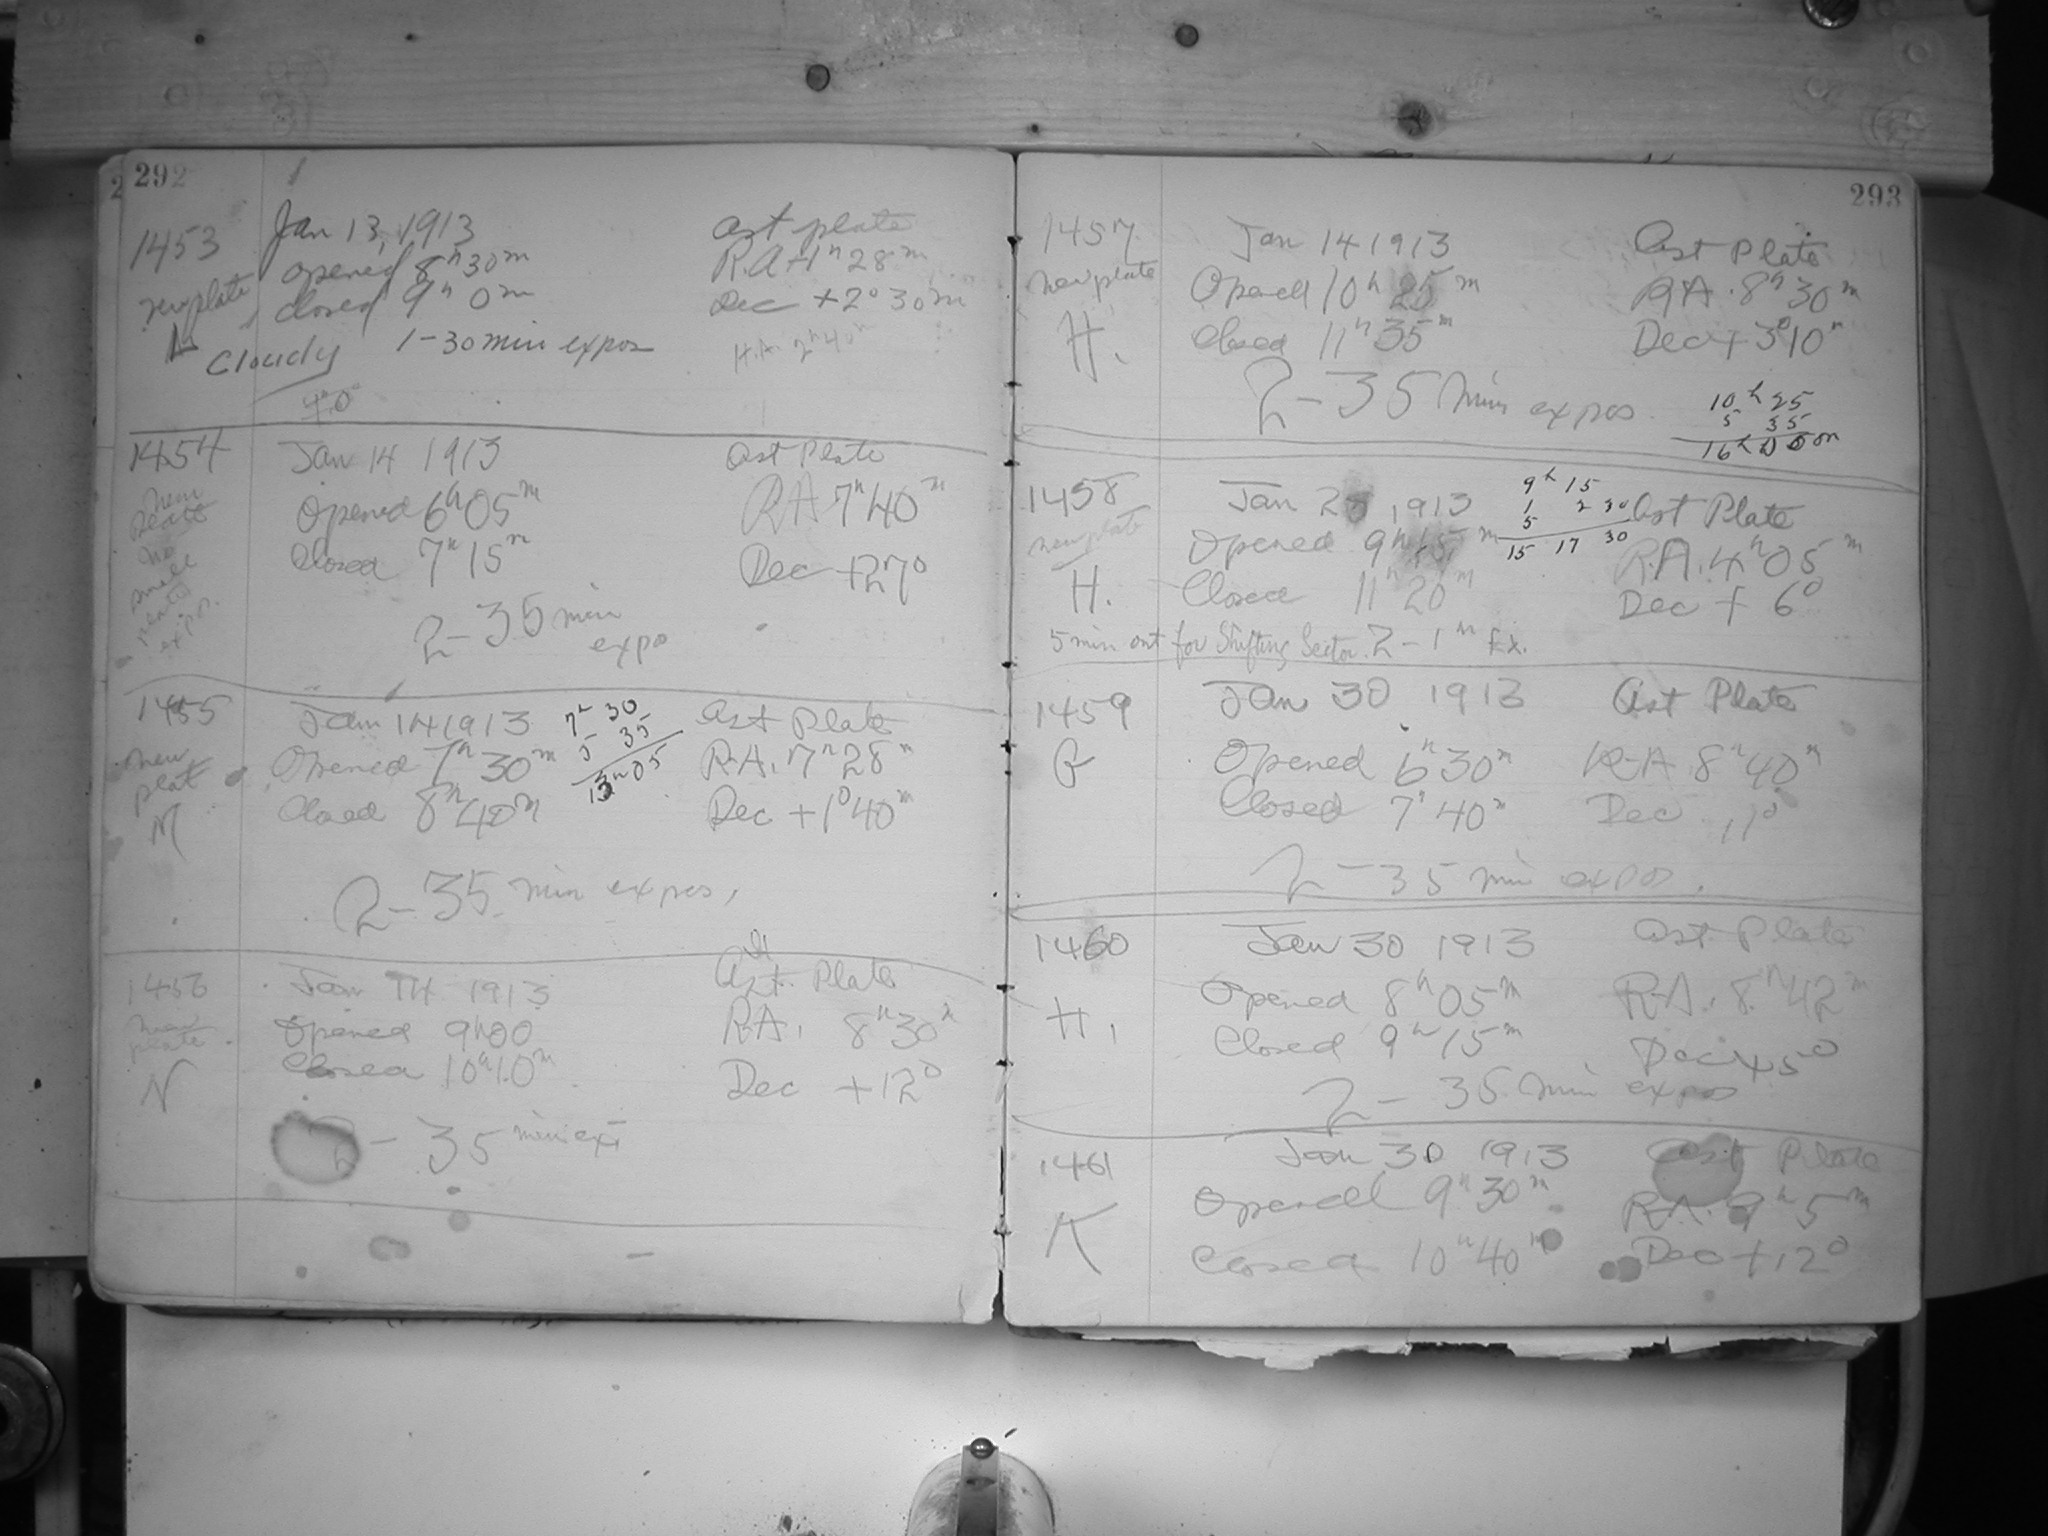 292
1453
Jan 13, 1913
ast plate
opened 8h 30m
R.A 1h 28m
new plate
closed 9h 0m
Dec +2° 30m
Cloudy 1-30 min expos
H.A. 2h 40m
4.0
1454
Jan 14 1913
Ast Plate
new plate
no
small
expo.
Opened 6h 05m
RA 7h 40m
Closed 7h 15m
Dec +27°
2-35 min
expo
1455
Jan 14 1913
7h 30
5 35
13h 05
Ast Plate
new
plat
Opened 7h 30m
R.A. 7h 28m
M
Closed 8h 40m
Dec +1° 40m
2-35 min expos,
1456
Jan 14 1913
Ast. Plate
new
plate
Opened 9h 00
R.A. 8h 30m
N
Closed 10h 10m
Dec +12°
2-35 min ex
293
1457
Jan 14 1913
Ast Plate
new plate
Opened 10h 25m
RA. 8h 30m
H.
Closed 11h 35m
Dec + 3° 10m
2-35 min expos
10h 25
5 35
16h 00m
1458
Jan 1913
9h 15
1 2 30
5
15 17 30
Ast Plate
new plate
Opened 9h 15m
R.A. 4h 05m
H.
Closed 11h 20m
Dec + 6°
5 min out for Shifting Sector. 2-1h Ex.
1459
Jan 30 1913
Ast Plate
G
Opened 6h 30m
R.A 8h 40m
Closed 7h 40m
Dec 11°
2-35 min expos.
1460
Jan 30 1913
Ast. Plate
H.
Opened 8h 05m
R.A. 8h 42m
Closed 9h 15m
Dec +5°
2-35 min expos
1461
Jan 30 1913
Ast Plate
K
Opened 9h 30m
RA. 9h 5m
Closed 10h 40m
Dec +12°